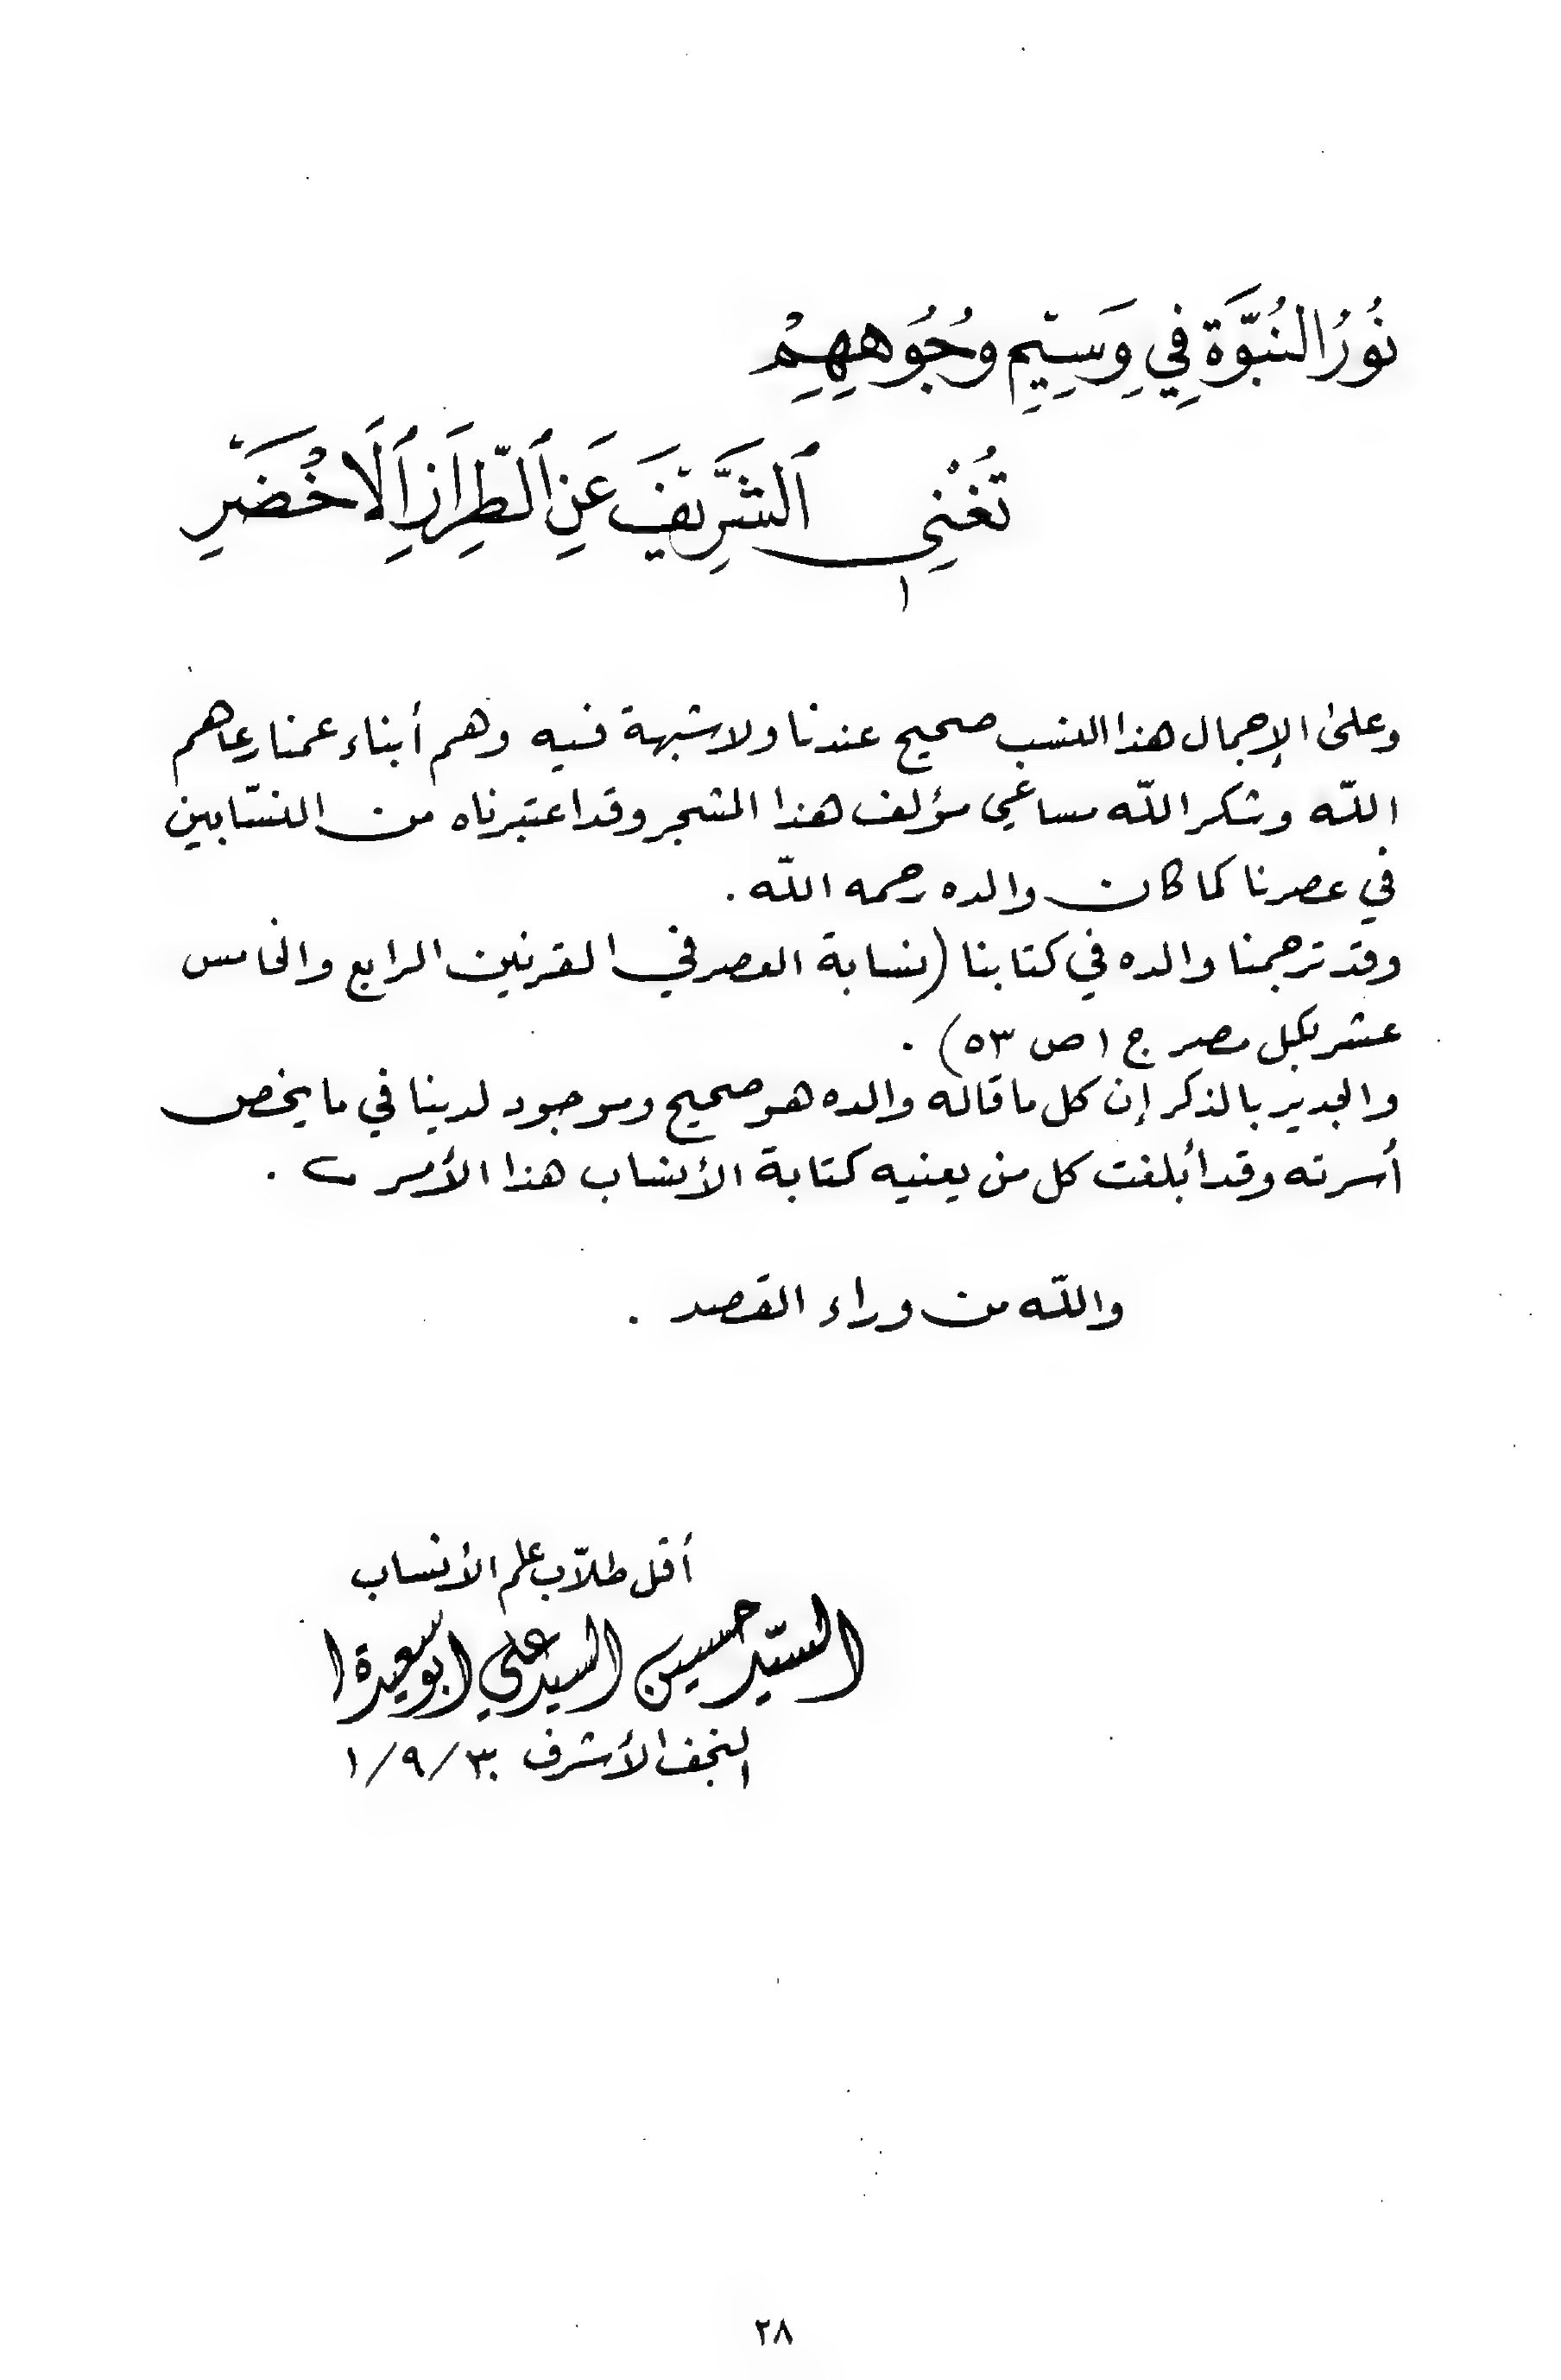 نُورُ النُبُوَّةِ فِي وَسِيْمِ وُجُوَهِهِمْ
تُغْنِى ٱلشَّرِيْفَ عَنِ ٱلطِّرَازِ ٱلَاخْضَرِ
١
وعلىٰ الإجمال هذا النسب صحيح عندنا ولا شبهة فيه وهم أبناء عمنا رعاهم
اللّه وشكر اللّه مساعي مؤلف هذا المشجر وقد اعتبرناه من النسّابين
في عصرنا كما كان والده رحمه اللّه .
وقد ترجمنا والده في كتابنا (نسابة العصر في القرنين الرابع والخامس
عشر بكل مصر ج ١ ص ٥٣) .
والجدير بالذكر إن كل ما قاله والده هو صحيح وموجود لدينا في ما يخص
أسرته وقد أبلغت كل من يعنيه كتابة الأنساب هذا الأمر .
واللّه من وراء القصد .
أقل طلّاب علم الأنساب
السيّد حسين السيد علي ابو سعيدة
النجف الأشرف ١/٩/٣٠
٢٨